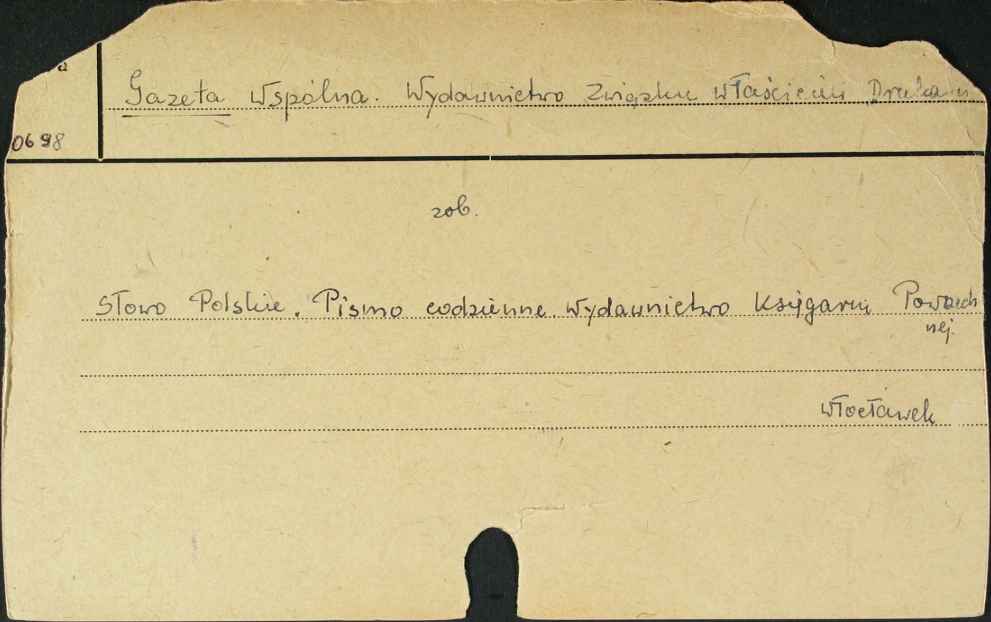 a
Gazeta Wspólna. Wydawnictwo Związku Właścicieli Drukarń
0698
zob.
Słowo Polskie. Pismo codzienne. Wydawnictwo Księgarni Powszech
nej.
Włocławek